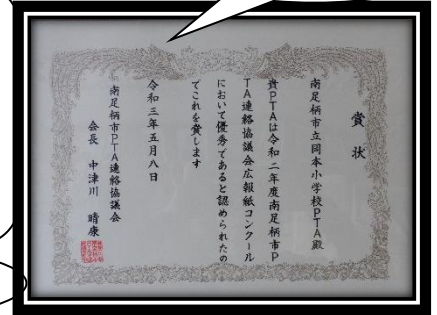 賞状
南足柄市立岡本小学校PTA殿
貴PTAは令和二年度南足柄市P
TA連絡協議会広報紙コンクール
において優秀であると認められたの
でこれを賞します
令和三年五月八日
南足柄市PTA連絡協議会
会長 中津川 晴康